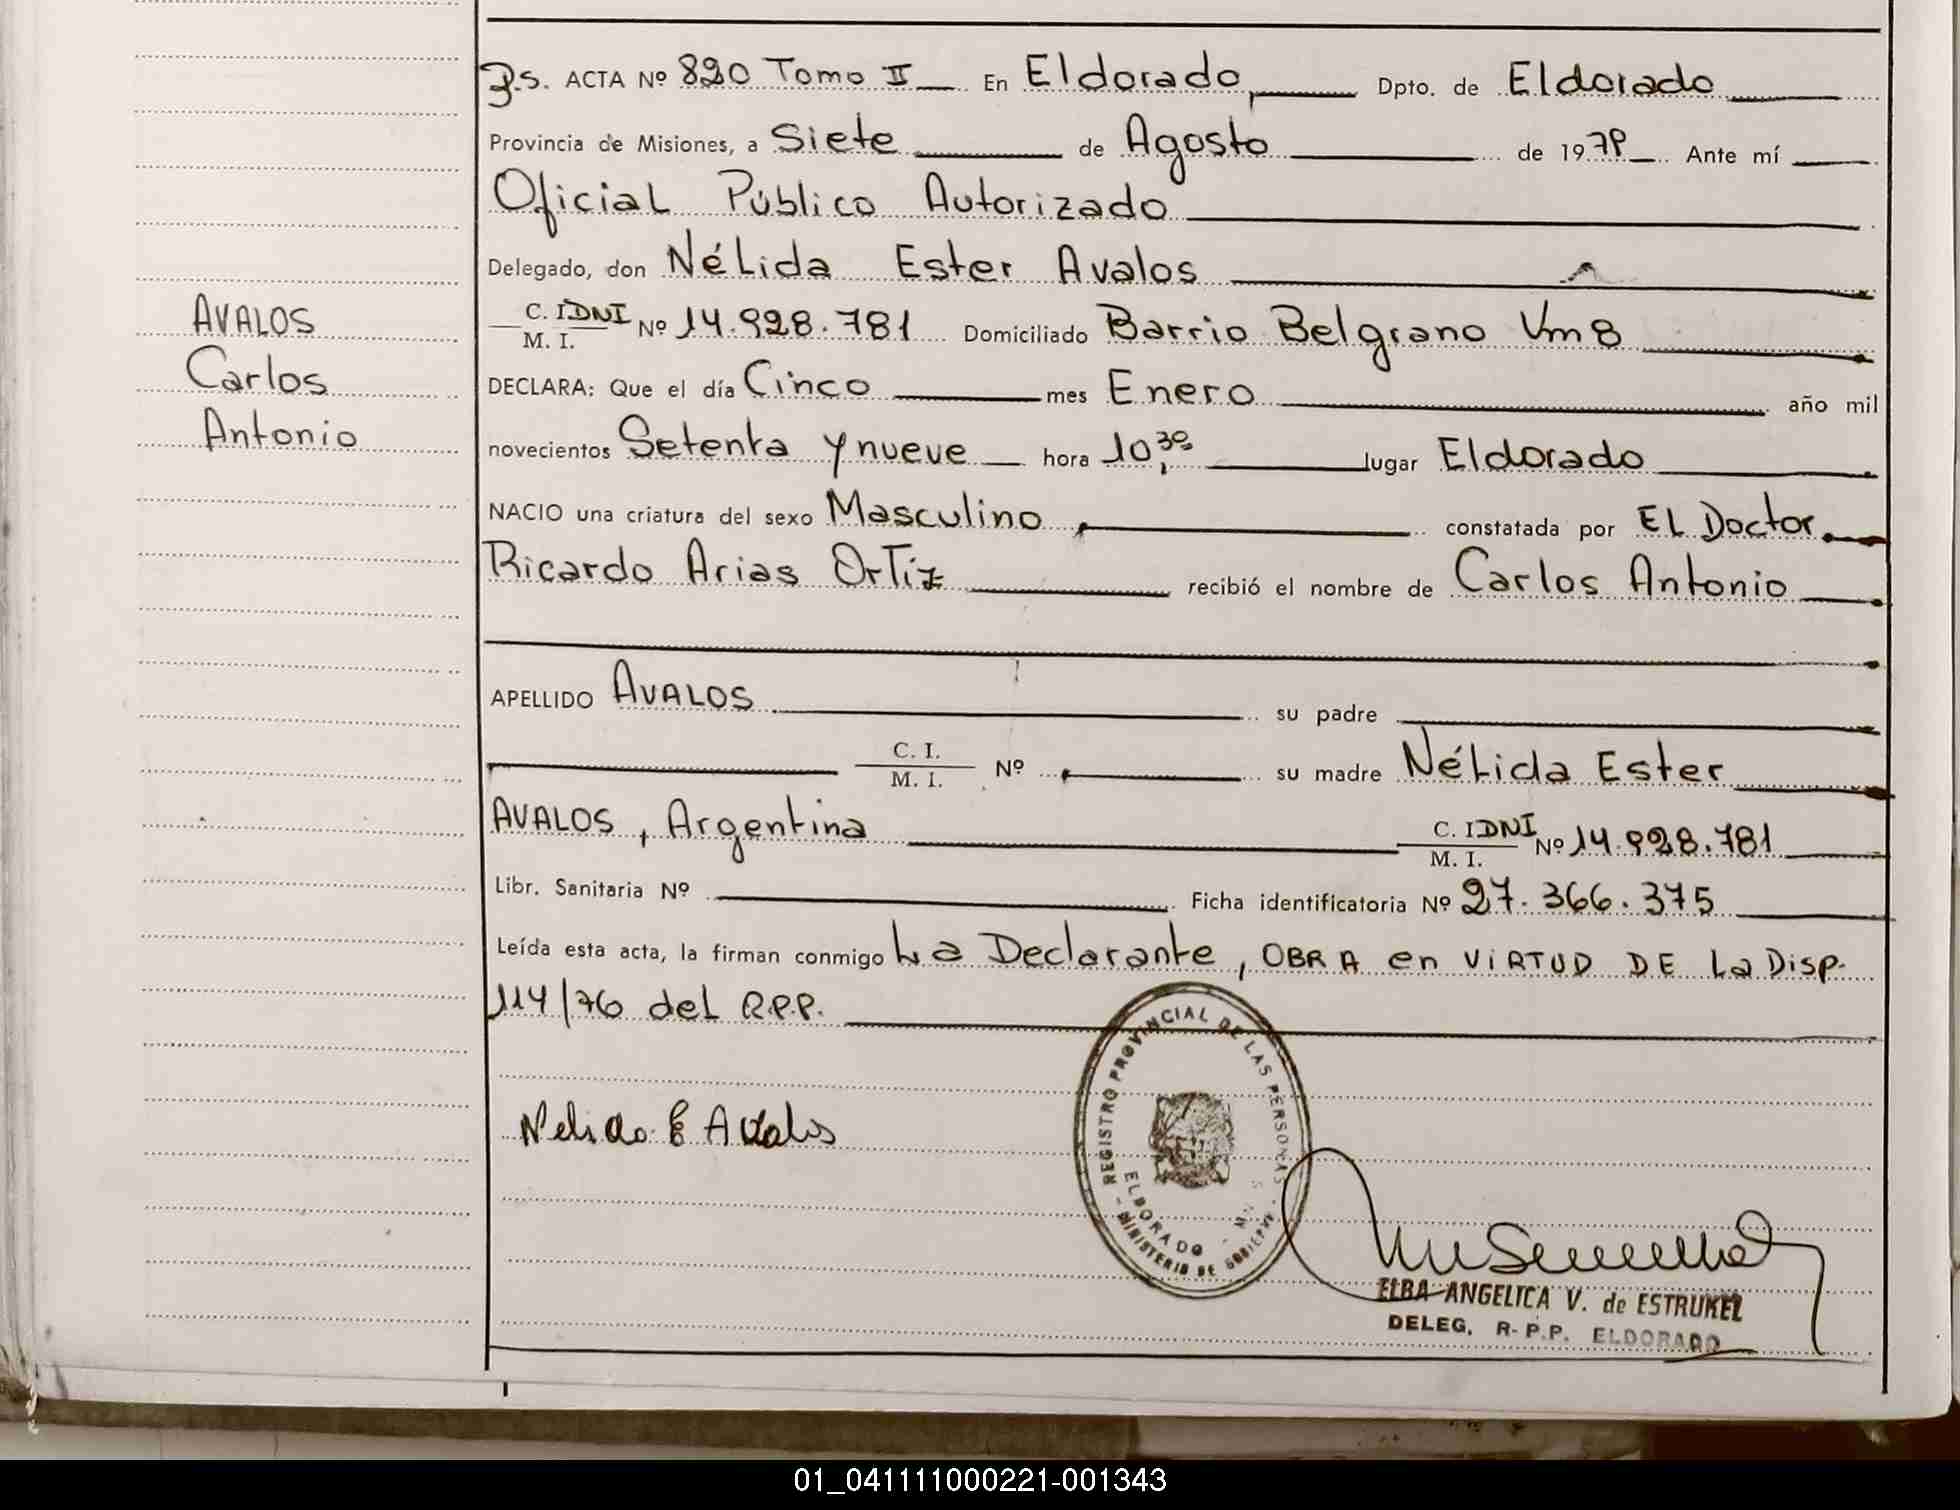 AVALOS
Carlos
Antonio
ACTA Nº 820 Tomo II En Eldorado, Dpto. de Eldorado
Provincia de Misiones, a Siete de Agosto de 1979 Ante mí
Oficial Público Autorizado
Delegado, don Nélida Ester Avalos
C. I. DNI
M. I. Nº 14.928.781 Domiciliado Barrio Belgrano Vm8
DECLARA: Que el día Cinco mes Enero año mil
novecientos Setenta y nueve hora 10,30 lugar Eldorado
NACIO una criatura del sexo Masculino constatada por EL Doctor
Ricardo Arias Ortiz recibió el nombre de Carlos Antonio
APELLIDO AVALOS su padre
C. I.
M. I. Nº su madre Nélida Ester
AVALOS, Argentina C. I. DNI
M. I. Nº 14.928.781
Libr. Sanitaria Nº Ficha identificatoria Nº 27.366.375
Leída esta acta, la firman conmigo La Declarante, OBRA en VIRTUD DE La Disp.
114/76 del R.P.P.
Nelida E Avalos
REGISTRO PROVINCIAL DE LAS PERSONAS
ELDORADO - MNES
MINISTERIO DE GOBIERNO
ELBA ANGELICA V. de ESTRUKEL
DELEG. R-P.P. ELDORADO
01_041111000221-001343